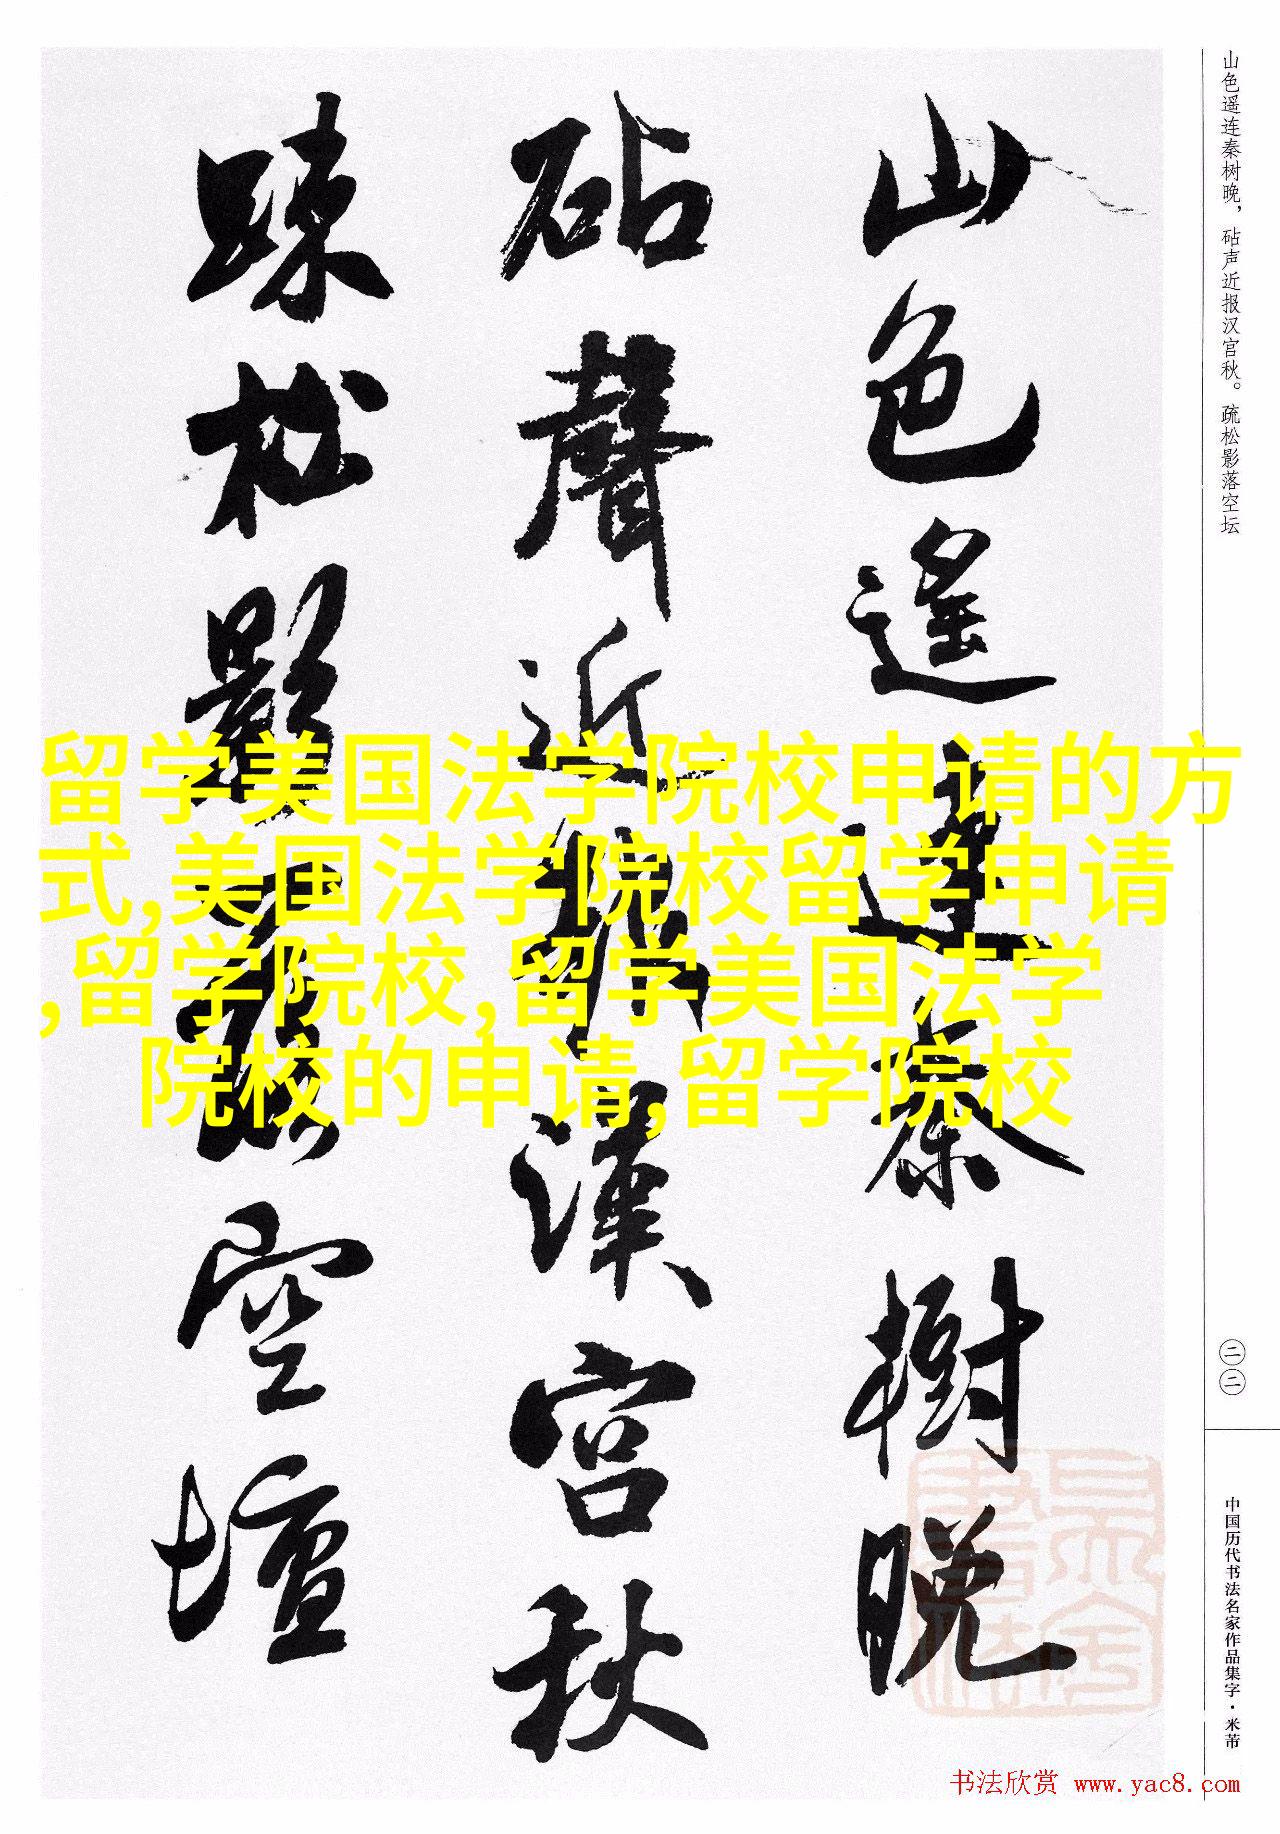 山色遥连秦树晚，砧声近报汉宫秋。疏松影落空坛
山色遥連秦樹晚
砧聲近報漢宮秋
踈松影落空壇
留学美国法学院校申请的方
式,美国法学院校留学申请
,留学院校,留学美国法学
院校的申请,留学院校
二二
中国历代书法名家作品集字·米芾
书法欣赏 www.yac8.com